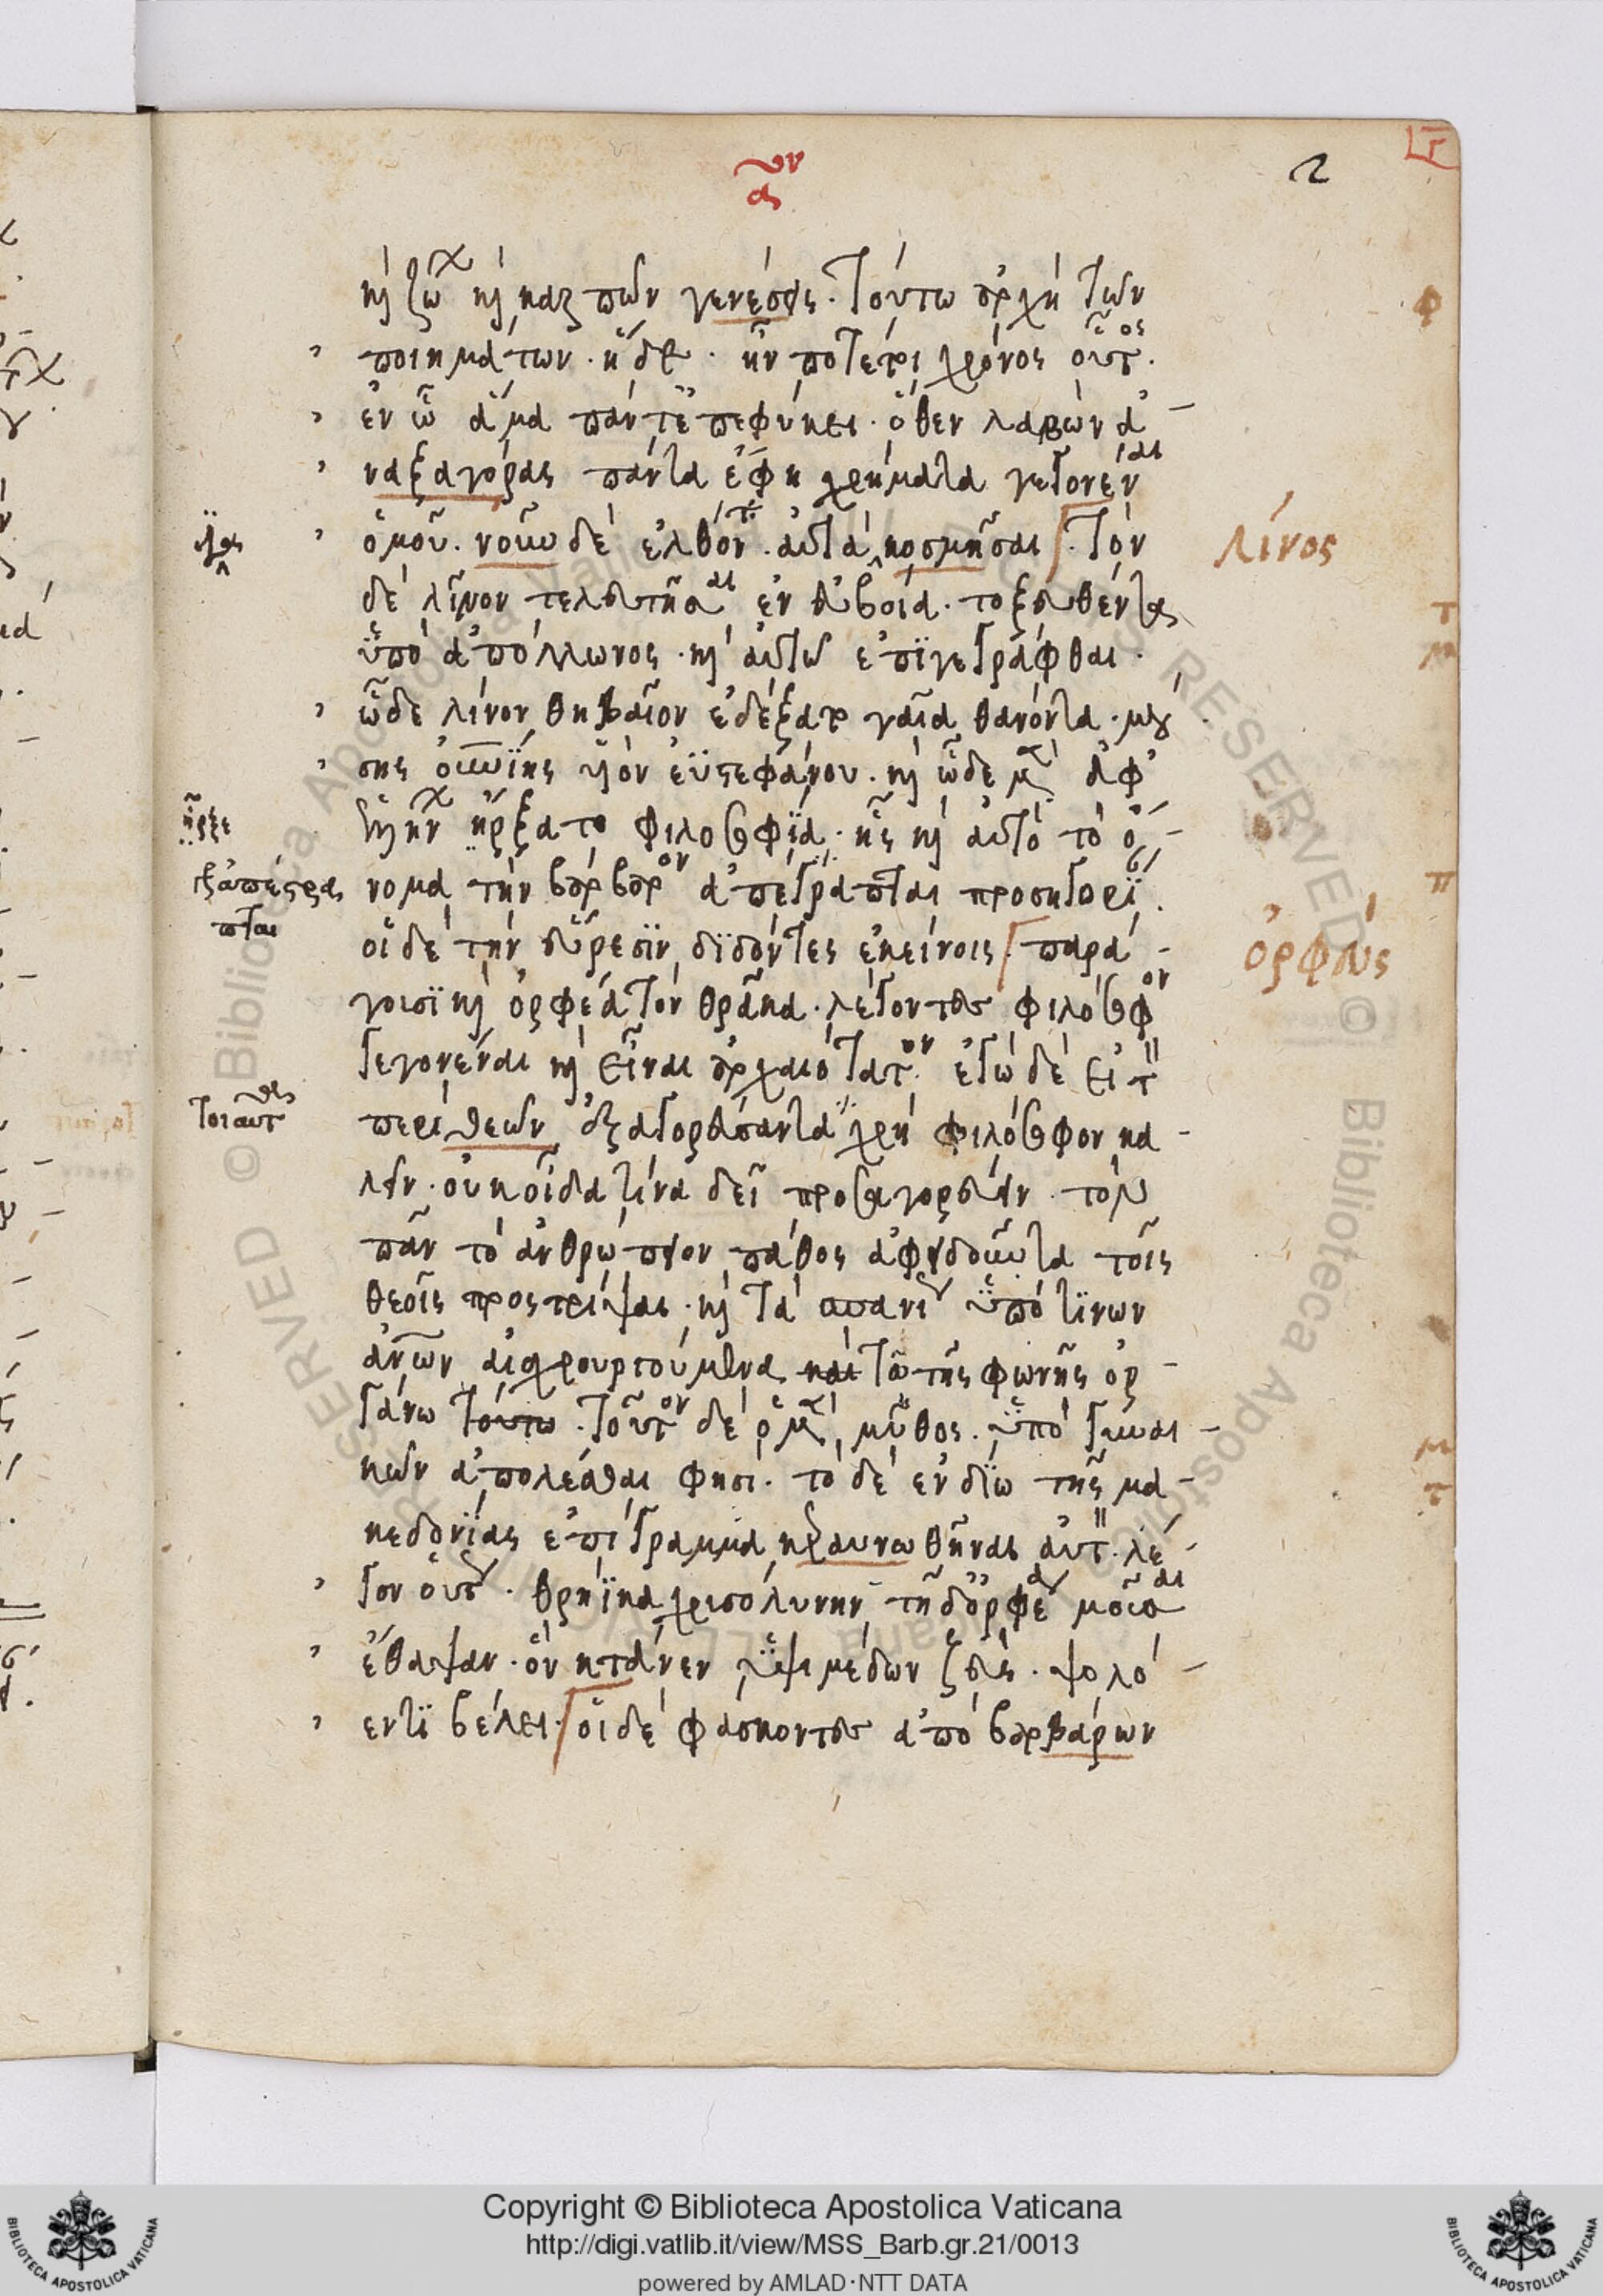 ον
α
2
Γ
κὶ ζώ κὶ καρπῶν γενέσεις. Τούτω ἀρχὴ τῶν
ποιημάτων. ἥδε. ἦν ποτέ τοι χρόνος οὗτος.
ἐν ᾧ ἅμα πάντ' ἐπεφύκει. ὅθεν λαβὼν ἀ-
ναξαγόρας πάντα ἔφη χρήματα γεγονέναι
ὁμοῦ. νοῦν δὲ ἐλθόντα. αὐτὰ κοσμῆσαι. Τὸν
λίνος
δὲ λῖνον τελευτῆσαι ἐν εὐβοία. τοξευθέντα
ὑπὸ ἀπόλλωνος. κὶ αὐτῶ ἐπϊγεγράφθαι.
ὧδε λίνον θηβαῖον ἐδέξατο γαῖα θανόντα. μού
σης οὐρανίης υἱὸν ἐϋστεφάνου. κὶ ὧδε μὲν ἀφ'
ἦρξε
ἑλλήνων ἤρξατο φιλοσοφϊα. ἧς κὶ αὐτὸ τὸ ὄ-
ἀπέστρα
πται
νομα τὴν βάρβαρον ἀπέγραπται προσηγορϊαν.
οἱ δὲ τὴν εὕρεσϊν δϊδόντες ἐκείνοις. παρά-
ὀρφεύς
γουσϊ κὶ ὀρφέα τὸν θρᾶκα. λέγοντες φιλόσοφον
γεγονέναι κὶ εἶναι ἀρχαιότατον. ἐγὼ δὲ εἰ τὸν
τοιαῦτα
περὶ θεῶν ἐξαγορεύσαντα χρὴ φιλόσοφον κα-
λεῖν. οὐκ οἶδα τίνα δεῖ προσαγορεύειν. τὸν
πᾶν τὸ ἀνθρώπειον πάθος ἀφειδοῦντα τοῖς
θεοῖς προστρίψαι. κὶ τὰ σπανίως ὑπό τϊνων
ἀνων αἰσχρουργούμενα καὶ τῶ τῆς φωνῆς ὀρ-
γάνω τούτω. τοῦτον δὲ ὁ μὲν μῦθος. ὑπὸ γυναι-
κῶν ἀπολέσθαι φησι. τὸ δὲ ἐν δϊω τῆς μα-
κεδονϊας ἐπίγραμμα κεραυνωθῆναι αὐτὸν. λέ-
γον οὕτως. θρήϊκα χρυσολύρην τῆδ' ὀρφέα μοῦσαι
ἔθαψαν. ὃν κτάνεν ὑψιμέδων ζεὺς. ψολό-
εντϊ βέλει. οἱ δὲ φάσκοντες ἀπὸ βαρβάρων
Copyright © Biblioteca Apostolica Vaticana
http://digi.vatlib.it/view/MSS_Barb.gr.21/0013
powered by AMLAD·NTT DATA